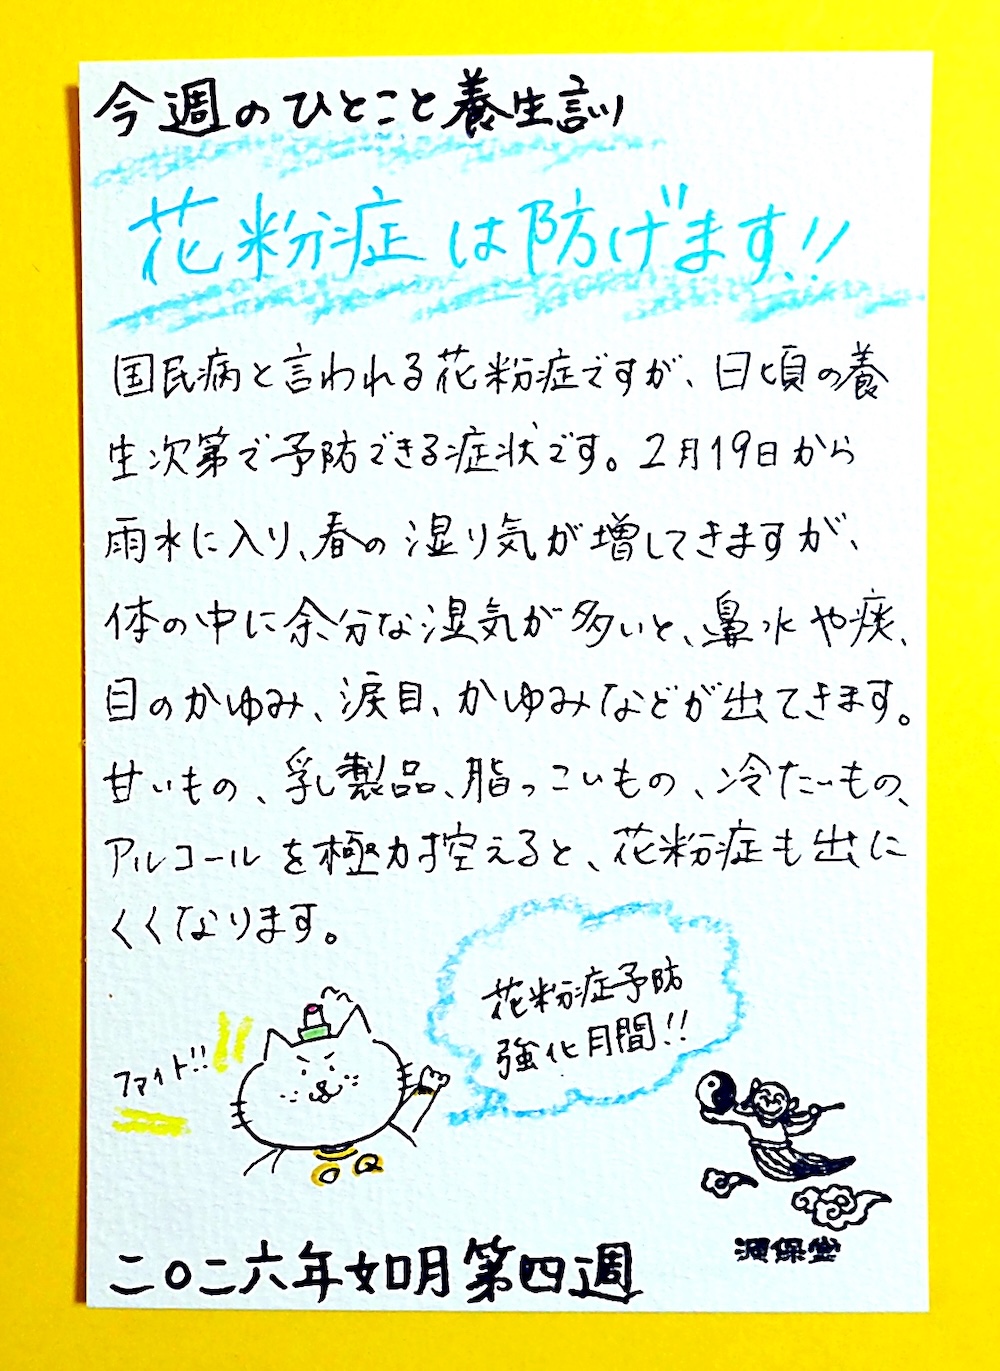 今週のひとこと養生訓
花粉症は防げます!!
国民病と言われる花粉症ですが、日頃の養
生次第で予防できる症状です。2月19日から
雨水に入り、春の湿り気が増してきますが、
体の中に余分な湿気が多いと、鼻水や痰、
目のかゆみ、涙目、かゆみなどが出てきます。
甘いもの、乳製品、脂っこいもの、冷たいもの、
アルコールを極力控えると、花粉症も出に
くくなります。
花粉症予防
強化月間!!
ファイト!!
源保堂
二〇二六年如月第四週